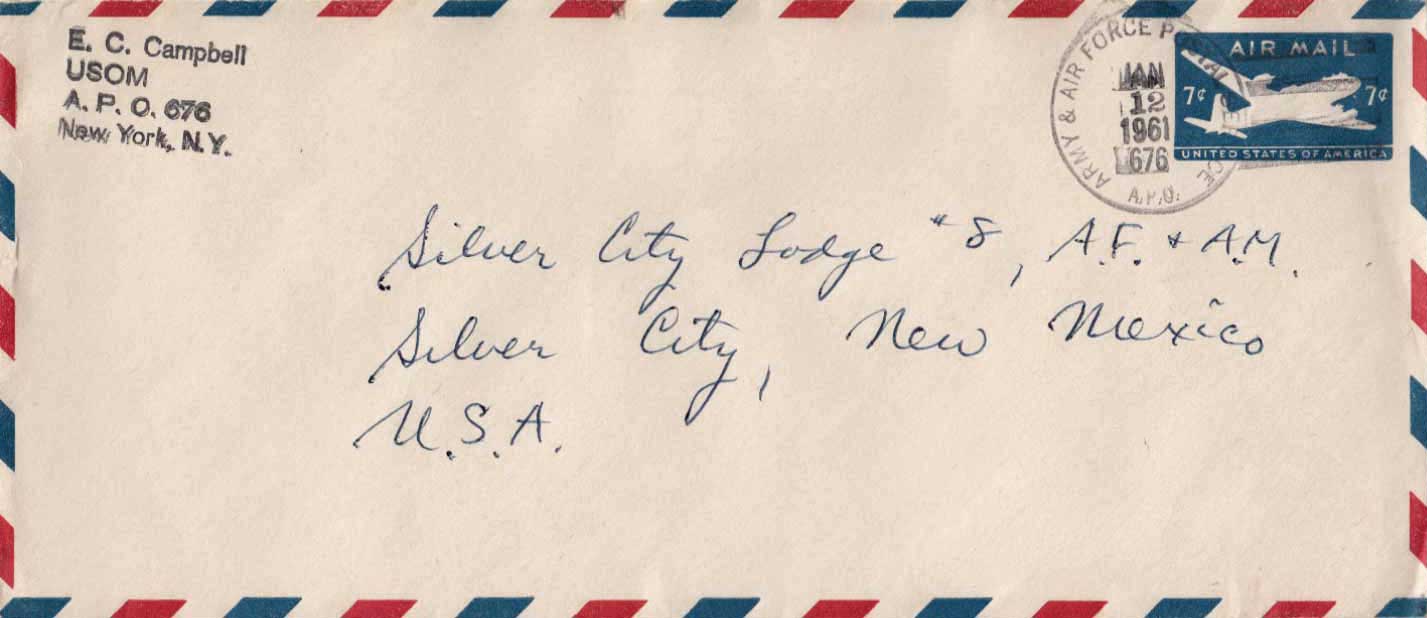 E. C. Campbell
USOM
A. P. O. 676
New York, N.Y.
ARMY & AIR FORCE POSTAL SERVICE
JAN
12
1961
676
A.P.O.
AIR MAIL
7¢ 7¢
UNITED STATES OF AMERICA
Silver City Lodge #8, A.F. + A.M.
Silver City, New Mexico
U.S.A.